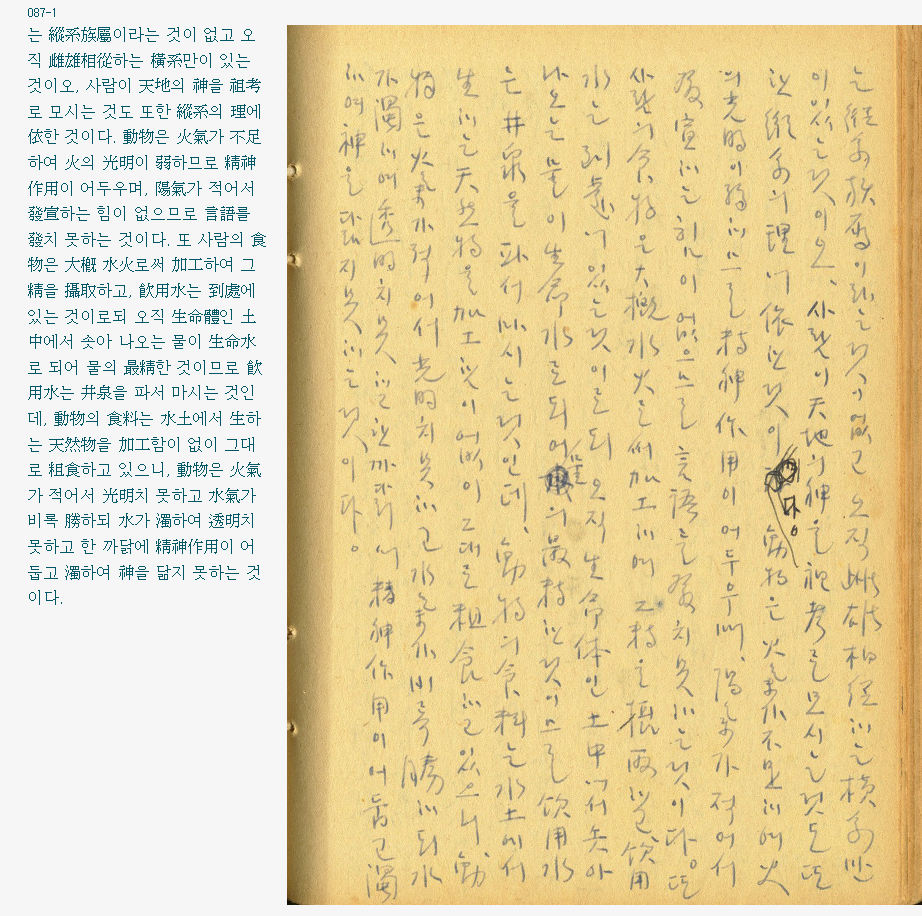 087-1
는 縱系族屬이라는 것이 없고 오
직 雌雄相從하는 橫系만이 있는
것이오, 사람이 天地의 神을 祖考
로 모시는 것도 또한 縱系의 理에
依한 것이다. 動物은 火氣가 不足
하여 火의 光明이 弱하므로 精神
作用이 어두우며, 陽氣가 적어서
發宣하는 힘이 없으므로 言語를
發치 못하는 것이다. 또 사람의 食
物은 大槪 水火로써 加工하여 그
精을 攝取하고, 飮用水는 到處에
있는 것이로되 오직 生命體인 土
中에서 솟아 나오는 물이 生命水
로 되어 물의 最精한 것이므로 飮
用水는 井泉을 파서 마시는 것인
데, 動物의 食料는 水土에서 生하
는 天然物을 加工함이 없이 그대
로 粗食하고 있으니, 動物은 火氣
가 적어서 光明치 못하고 水氣가
비록 勝하되 水가 濁하여 透明치
못하고 한 까닭에 精神作用이 어
둡고 濁하여 神을 닮지 못하는 것
이다.
는 縱系族屬이라는것이없고 오직 雌雄相從하는 橫系만
이있는것이오, 사람이 天地의神을 祖考로 모시는것도 또
한 縱系의理에 依한것이다。 動物은 火氣가 不足하여 火
의光明이弱하므로 精神作用이 어두우며, 陽氣가 적어서
發宣하는힘이 없으므로 言語를 發치못하는것이다。 또
사람의食物은 大槪 水火로써 加工하여 그精을 攝取하고, 飮用
水는 到處에있는것이로되 오직 生命体인 土中에서 솟아
나오는물이 生命水로되어 물의 最精한것이므로 飮用水
는 井泉을 파서 마시는것인데, 動物의食料는 水土에서
生하는天然物을 加工함이없이 그대로 粗食하고있으니, 動
物은火氣가적어서 光明치못하고 水氣가비록 勝하되 水
가濁하여 透明치못하고한까닭에 精神作用이어둡고濁
하여神을 닮지못하는것이다。